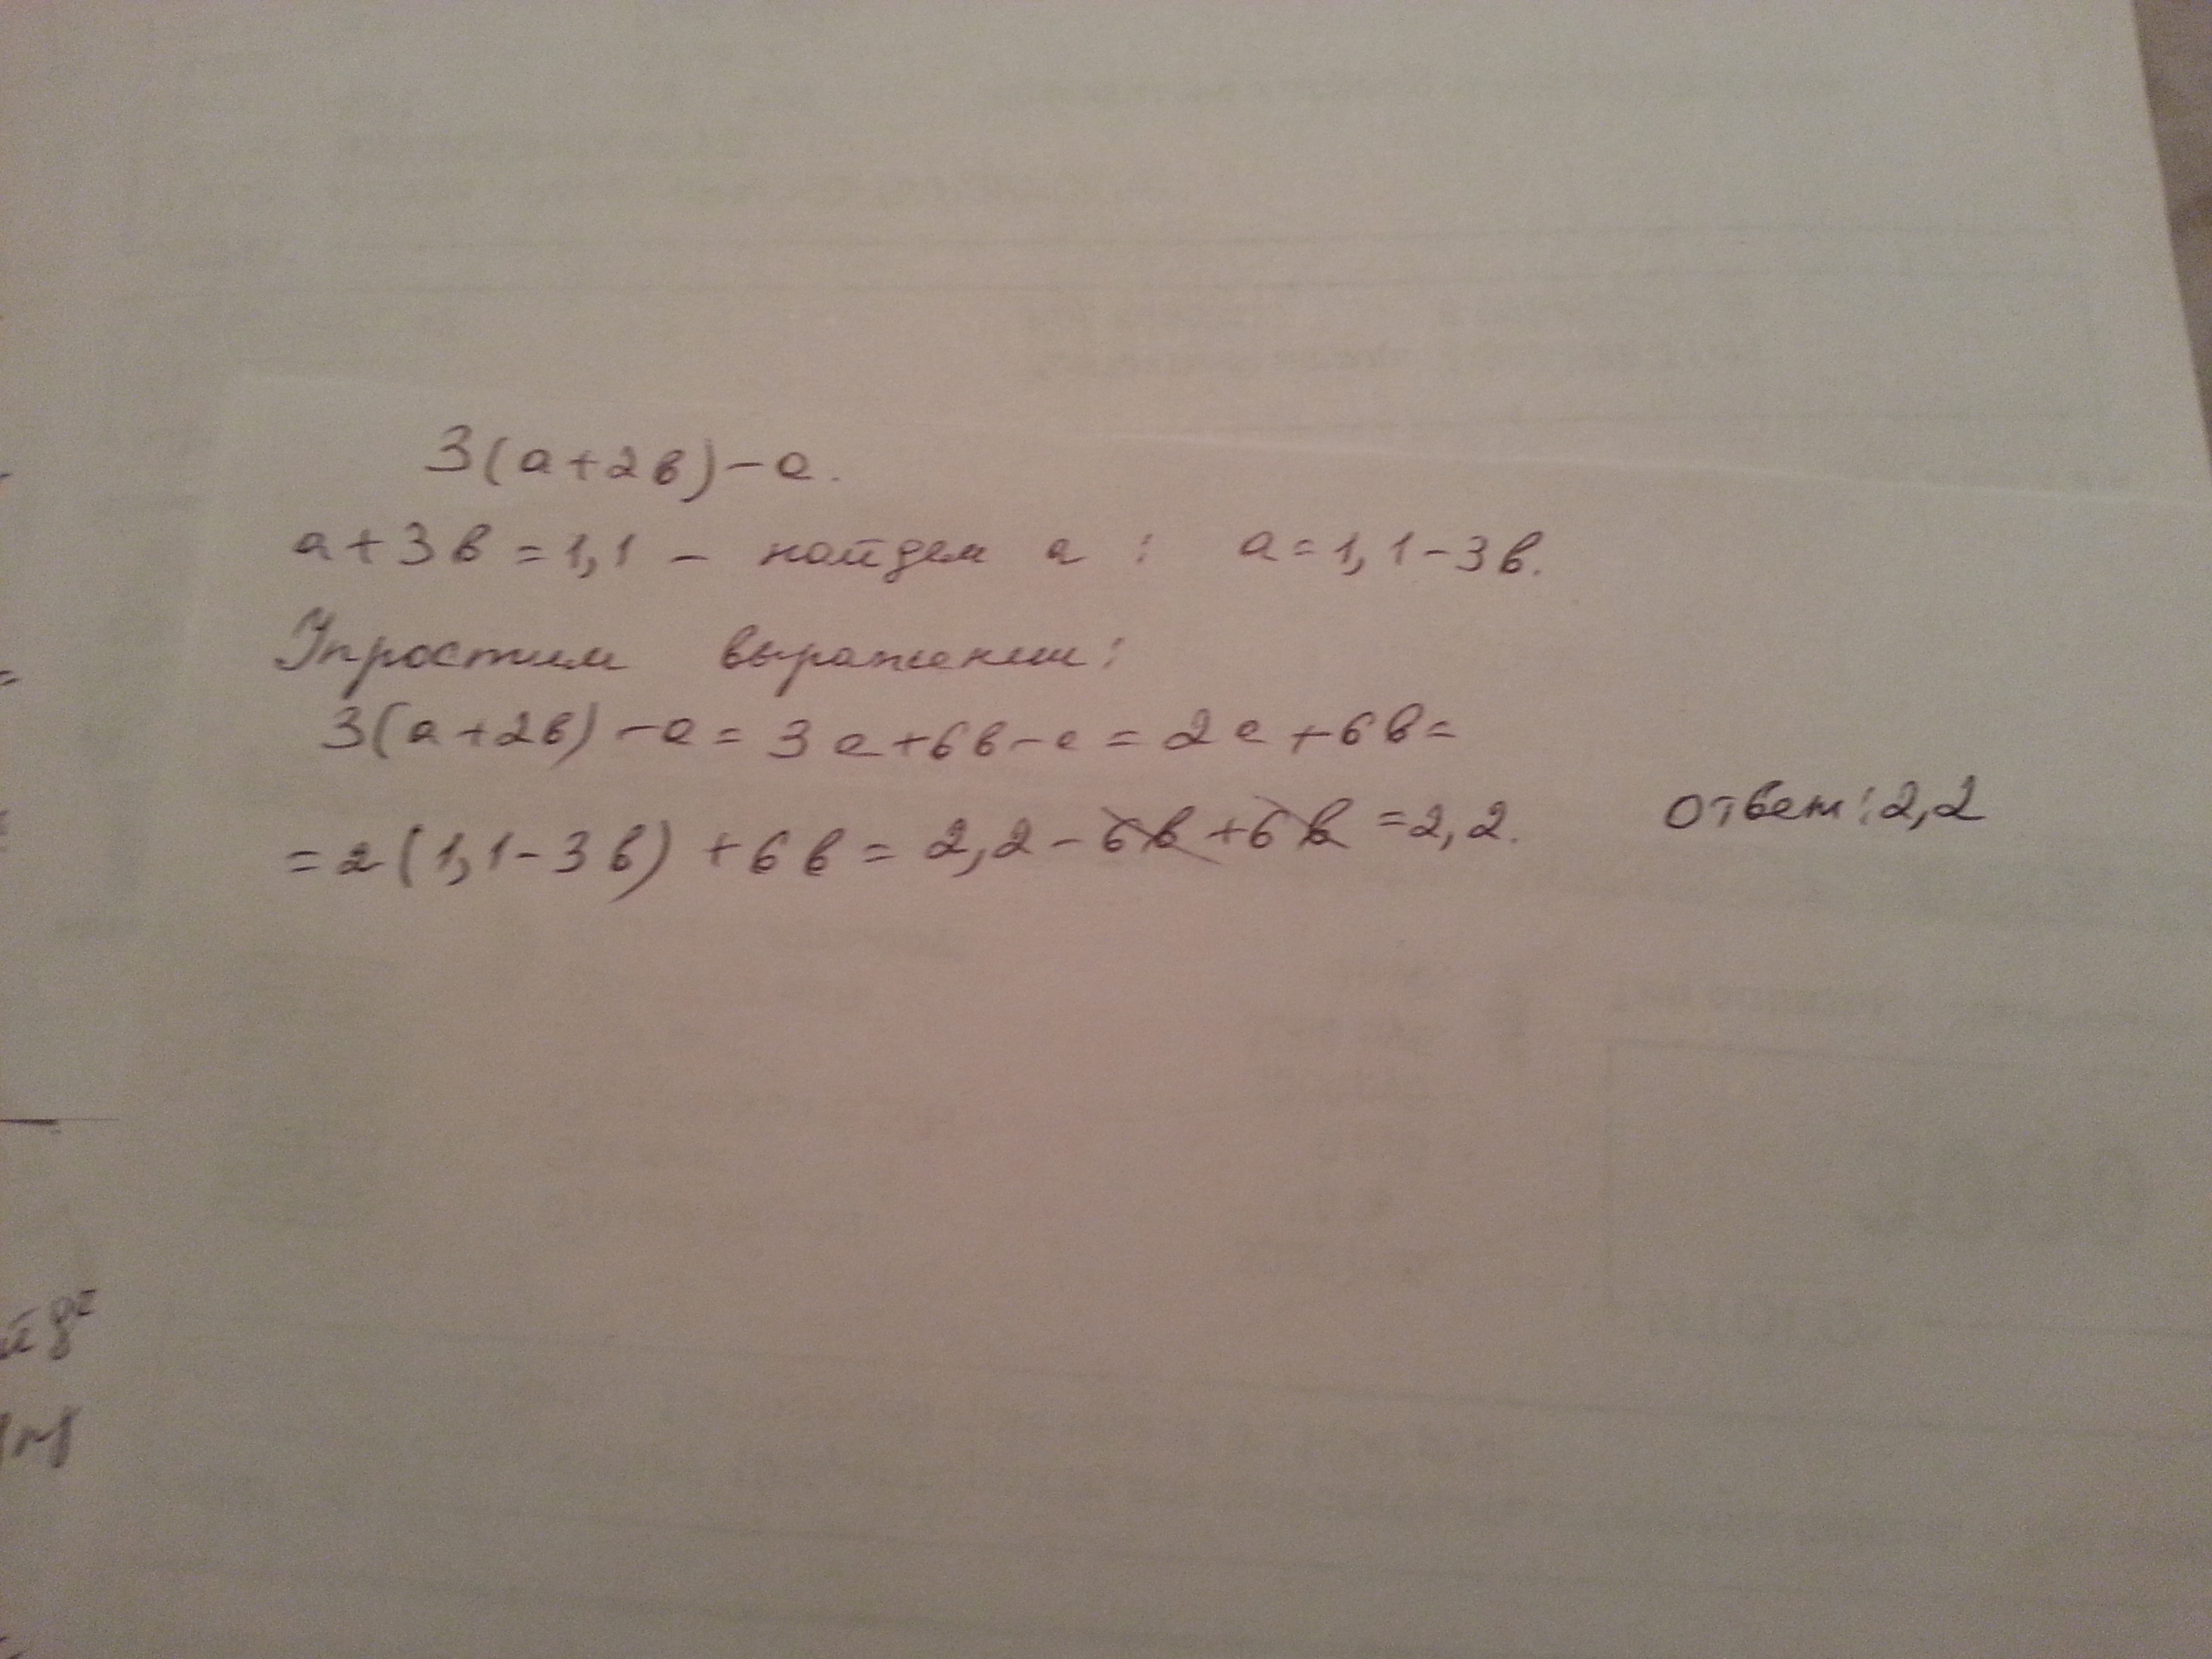 3(a+2в)-a.
a+3в=1,1 - найдем a: a=1,1-3в.
Упростим выражении:
3(a+2в)-a=3a+6в-a=2a+6в=
=2(1,1-3в)+6в=2,2-6в+6в=2,2. ответ:2,2